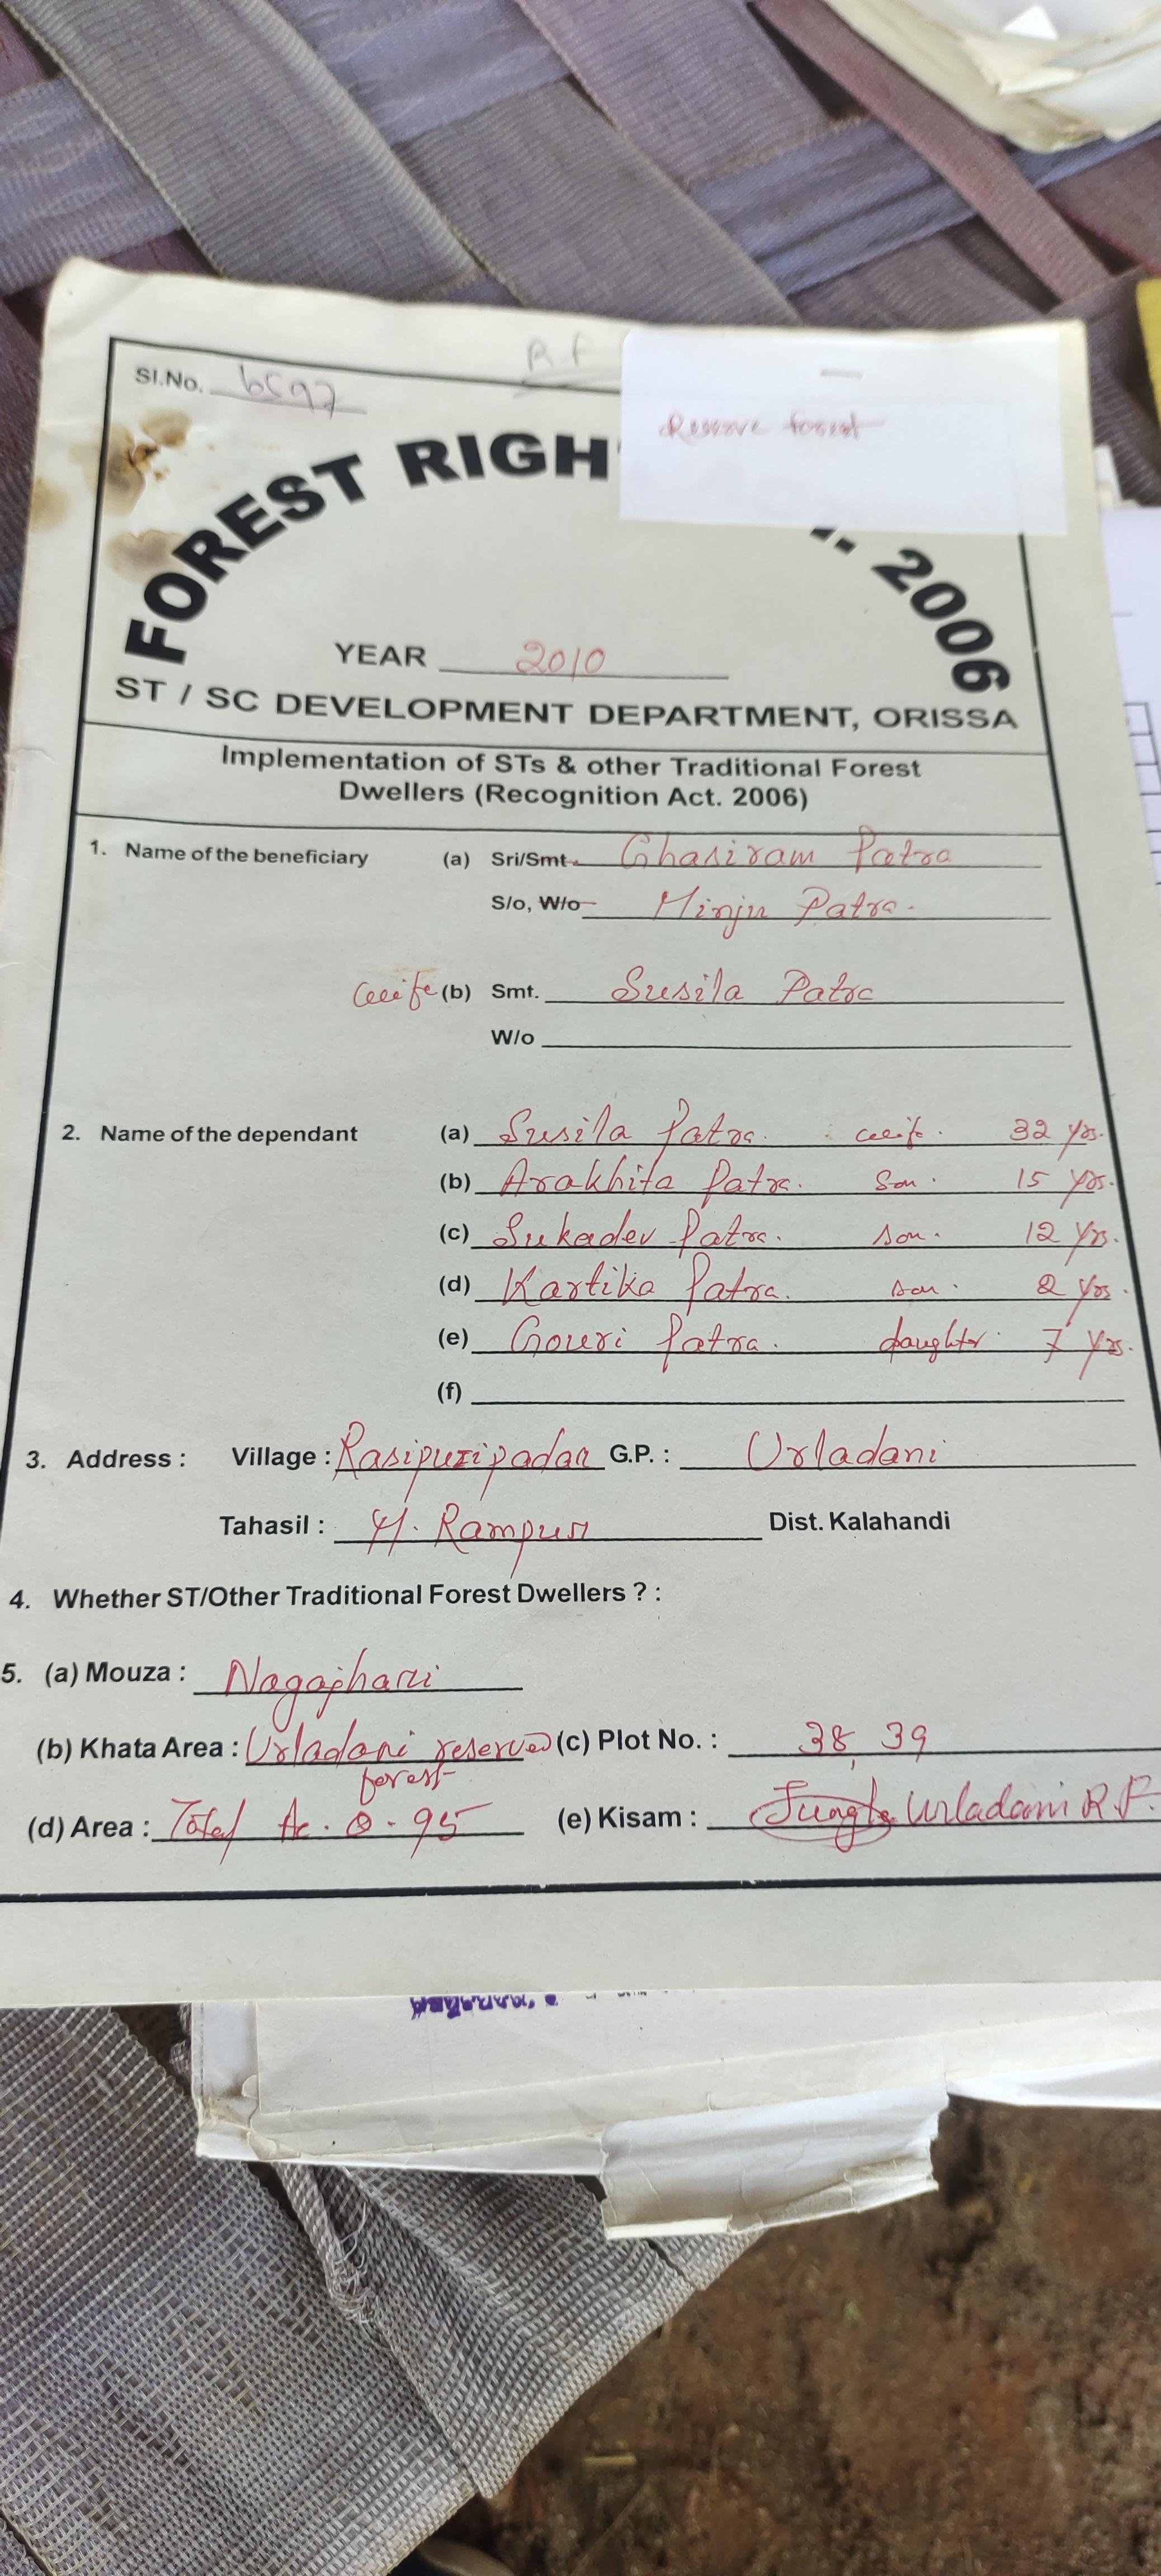 R.F
Sl.No. 6597
Reserve forest
FOREST RIGH 2006
YEAR 2010
ST / SC DEVELOPMENT DEPARTMENT, ORISSA
Implementation of STs & other Traditional Forest
Dwellers (Recognition Act. 2006)
1. Name of the beneficiary (a) Sri/Smt. Ghasiram Patra
S/o, W/o Minju Patra.
wife (b) Smt. Susila Patra
W/o
2. Name of the dependant (a) Susila Patra. wife. 32 yrs.
(b) Arakhita Patra. Son. 15 yrs.
(c) Sukadev Patra. son. 12 yrs.
(d) Kartika Patra. son. 2 yrs.
(e) Gouri Patra. daughter. 7 yrs.
(f)
3. Address : Village : Rasipuripadar G.P. : Urladani
Tahasil : M. Rampur Dist. Kalahandi
4. Whether ST/Other Traditional Forest Dwellers ? :
5. (a) Mouza : Nagajhari
(b) Khata Area : Urladani reserved forest (c) Plot No. : 38, 39
(d) Area : Total Ac. 0.95 (e) Kisam : Jungle Urladani R.F.